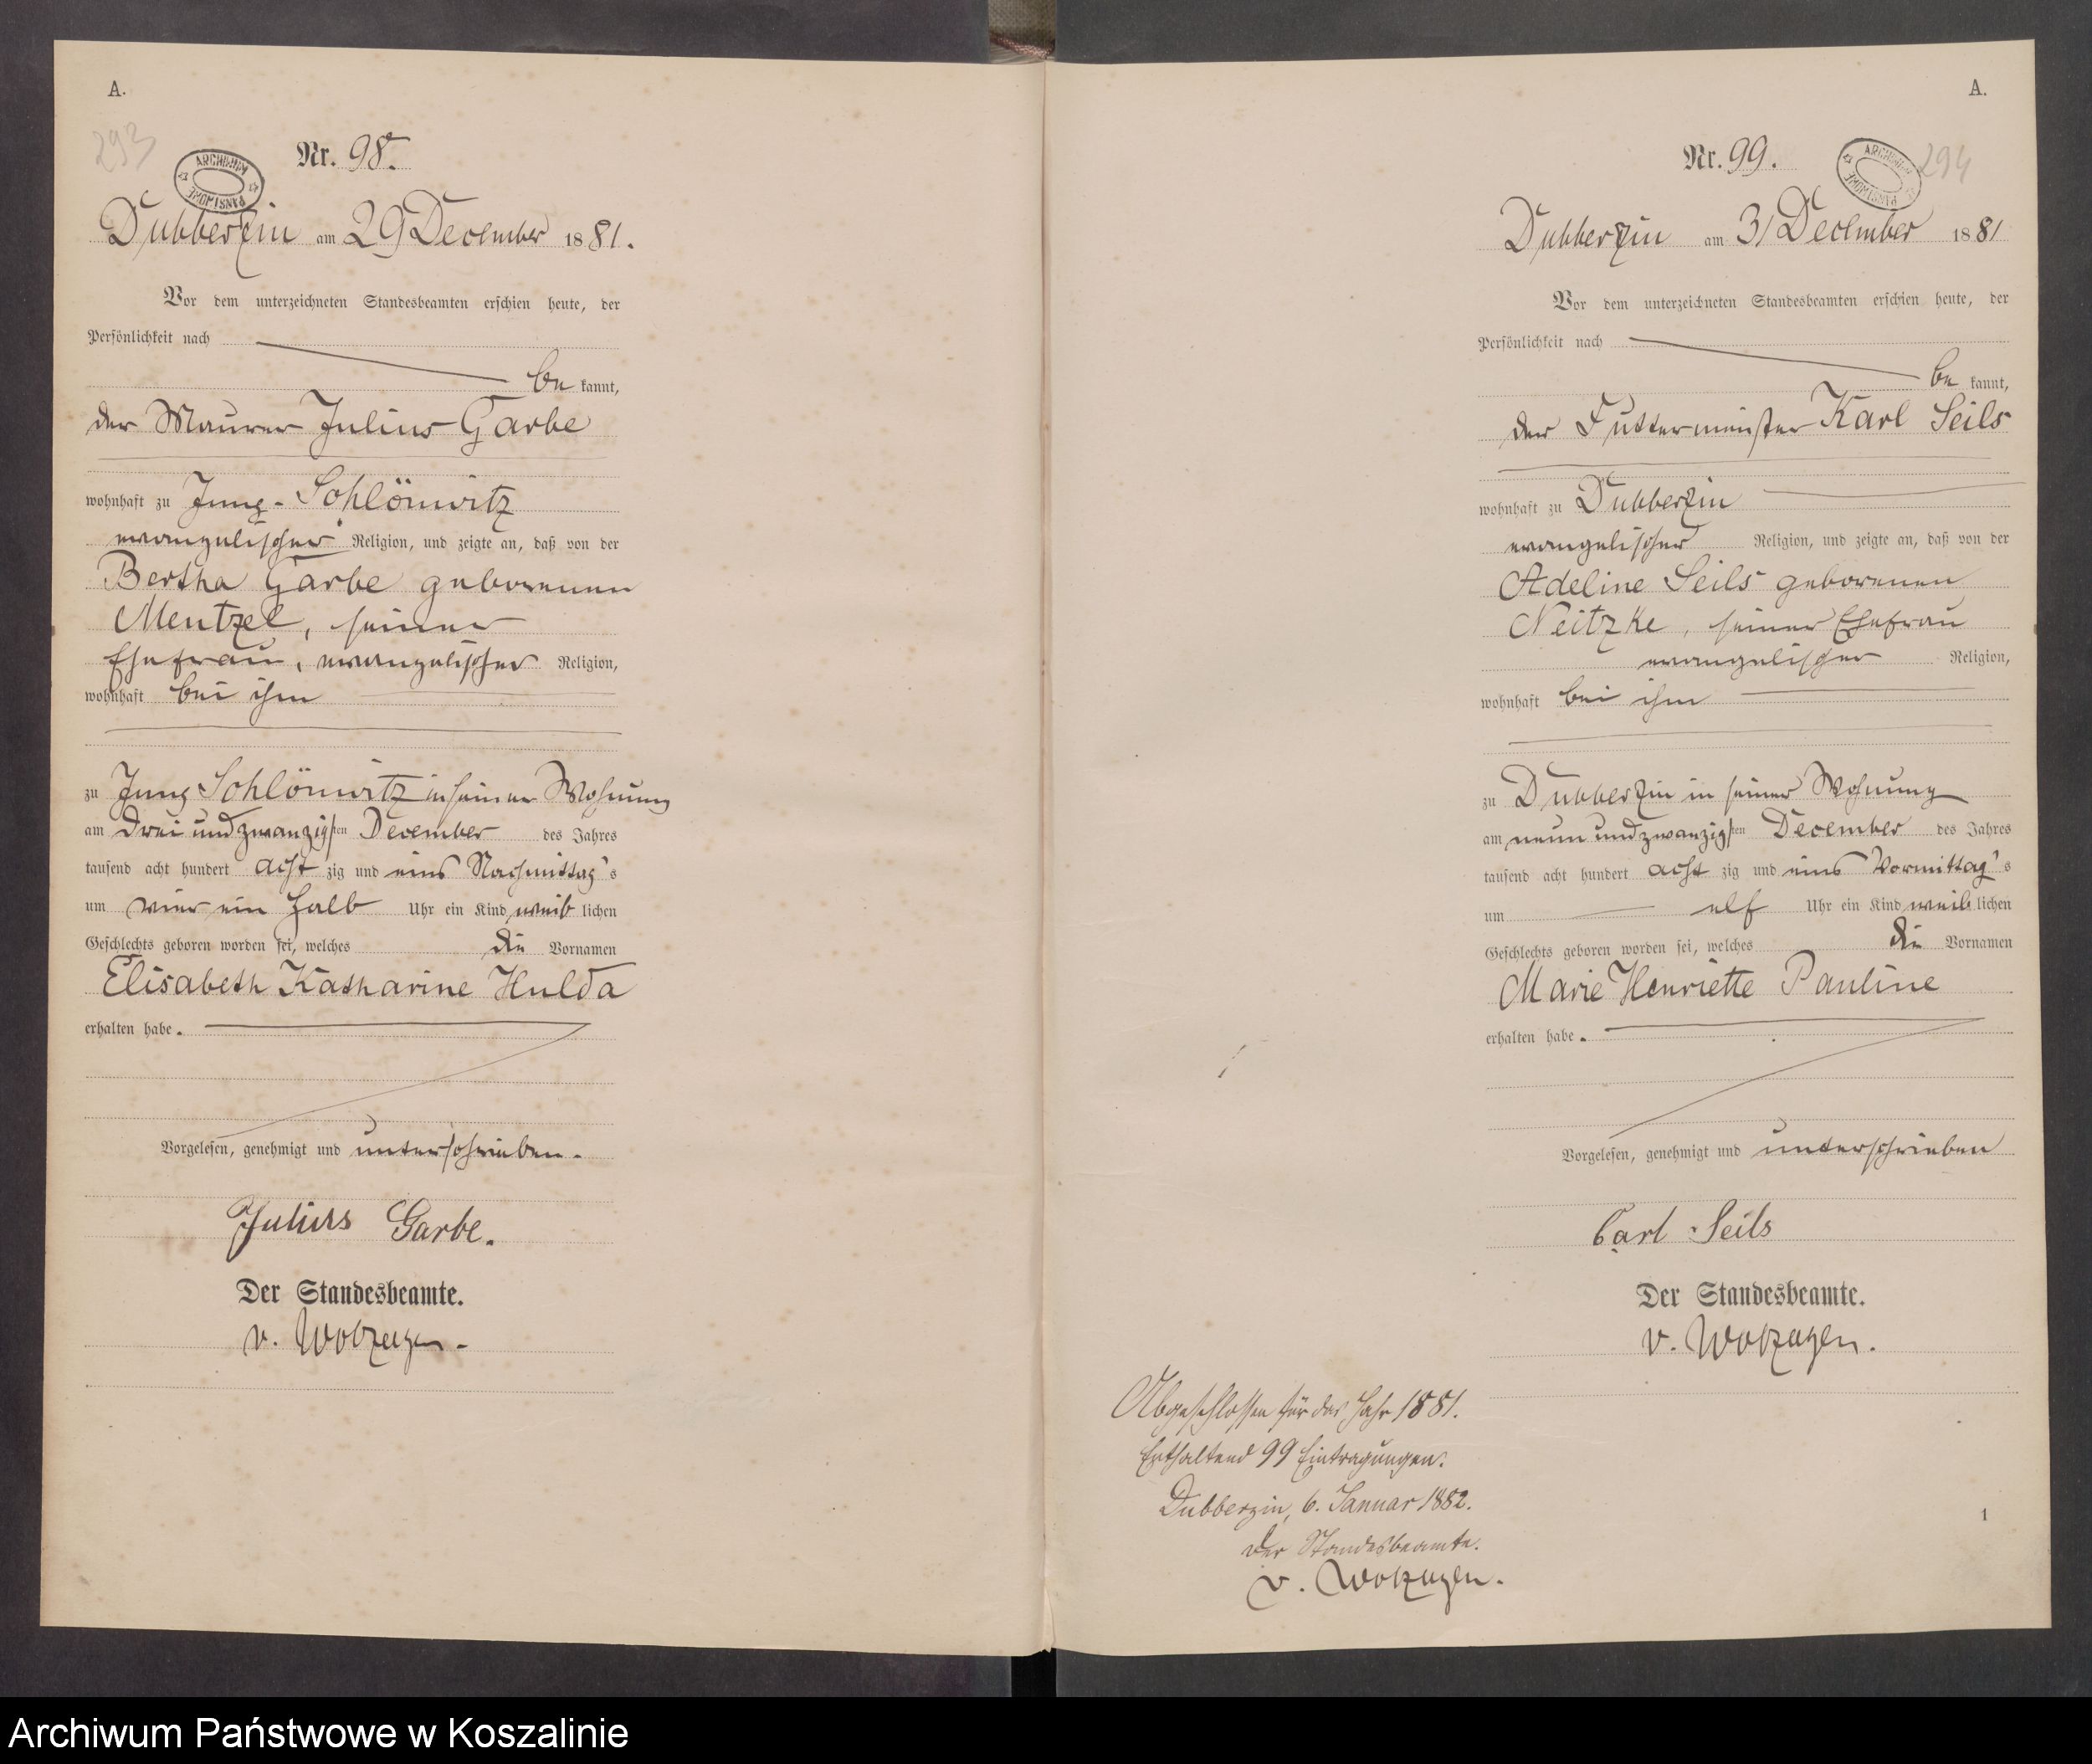 A.
293
ARCHIWUM PAŃSTWOWE
Nr. 98.
Dubberzin am 29 December 1881.
Vor dem unterzeichneten Standesbeamten erschien heute, der
Persönlichkeit nach
be kannt,
der Maurer Julius Garbe
wohnhaft zu Jung-Schlönwitz
evangelischer Religion, und zeigte an, daß von der
Bertha Garbe geborenen
Mentzel, seiner
Ehefrau, evangelischer Religion,
wohnhaft bei ihm
zu Jung Schlönwitz in seiner Wohnung
am drei und zwanzigsten December des Jahres
tausend acht hundert acht zig und eins Nachmittag's
um vier ein halb Uhr ein Kind weib lichen
Geschlechts geboren worden sei, welches die Vornamen
Elisabeth Katharine Hulda
erhalten habe.
Vorgelesen, genehmigt und unterschrieben.
Julius Garbe.
Der Standesbeamte.
v. Woedtke
A.
Nr. 99.
ARCHIWUM PAŃSTWOWE
294
Dubberzin am 31 December 1881
Vor dem unterzeichneten Standesbeamten erschien heute, der
Persönlichkeit nach
be kannt,
der Futtermeister Karl Seils
wohnhaft zu Dubberzin
evangelischer Religion, und zeigte an, daß von der
Adeline Seils geborenen
Neitzke, seiner Ehefrau
evangelischer Religion,
wohnhaft bei ihm
zu Dubberzin in seiner Wohnung
am neun und zwanzigsten December des Jahres
tausend acht hundert acht zig und eins Vormittag's
um elf Uhr ein Kind weib lichen
Geschlechts geboren worden sei, welches die Vornamen
Marie Henriette Pauline
erhalten habe.
Vorgelesen, genehmigt und unterschrieben
Carl Seils
Der Standesbeamte.
v.
Abgeschlossen für das Jahr 1881.
Enthaltend 99 Eintragungen.
Dubberzin, 6. Januar 1882.
Der Standesbeamte.
v.
1
Archiwum Państwowe w Koszalinie